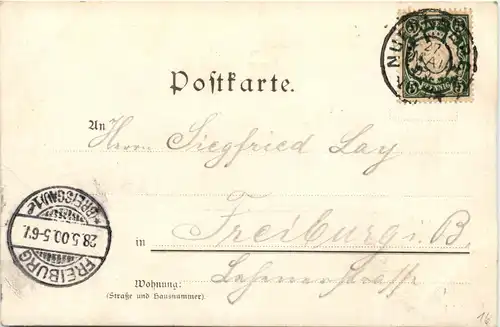 BAYERN
5 PFENNIG 5
27 MAI
Postkarte.
An Herrn Siegfried Lay
in Freiburg i. B.
Wohnung:
(Straße und Hausnummer)
Lehenerstrasse
FREIBURG
28.5.00.5-6V.
(BREISGAU) 1e
16